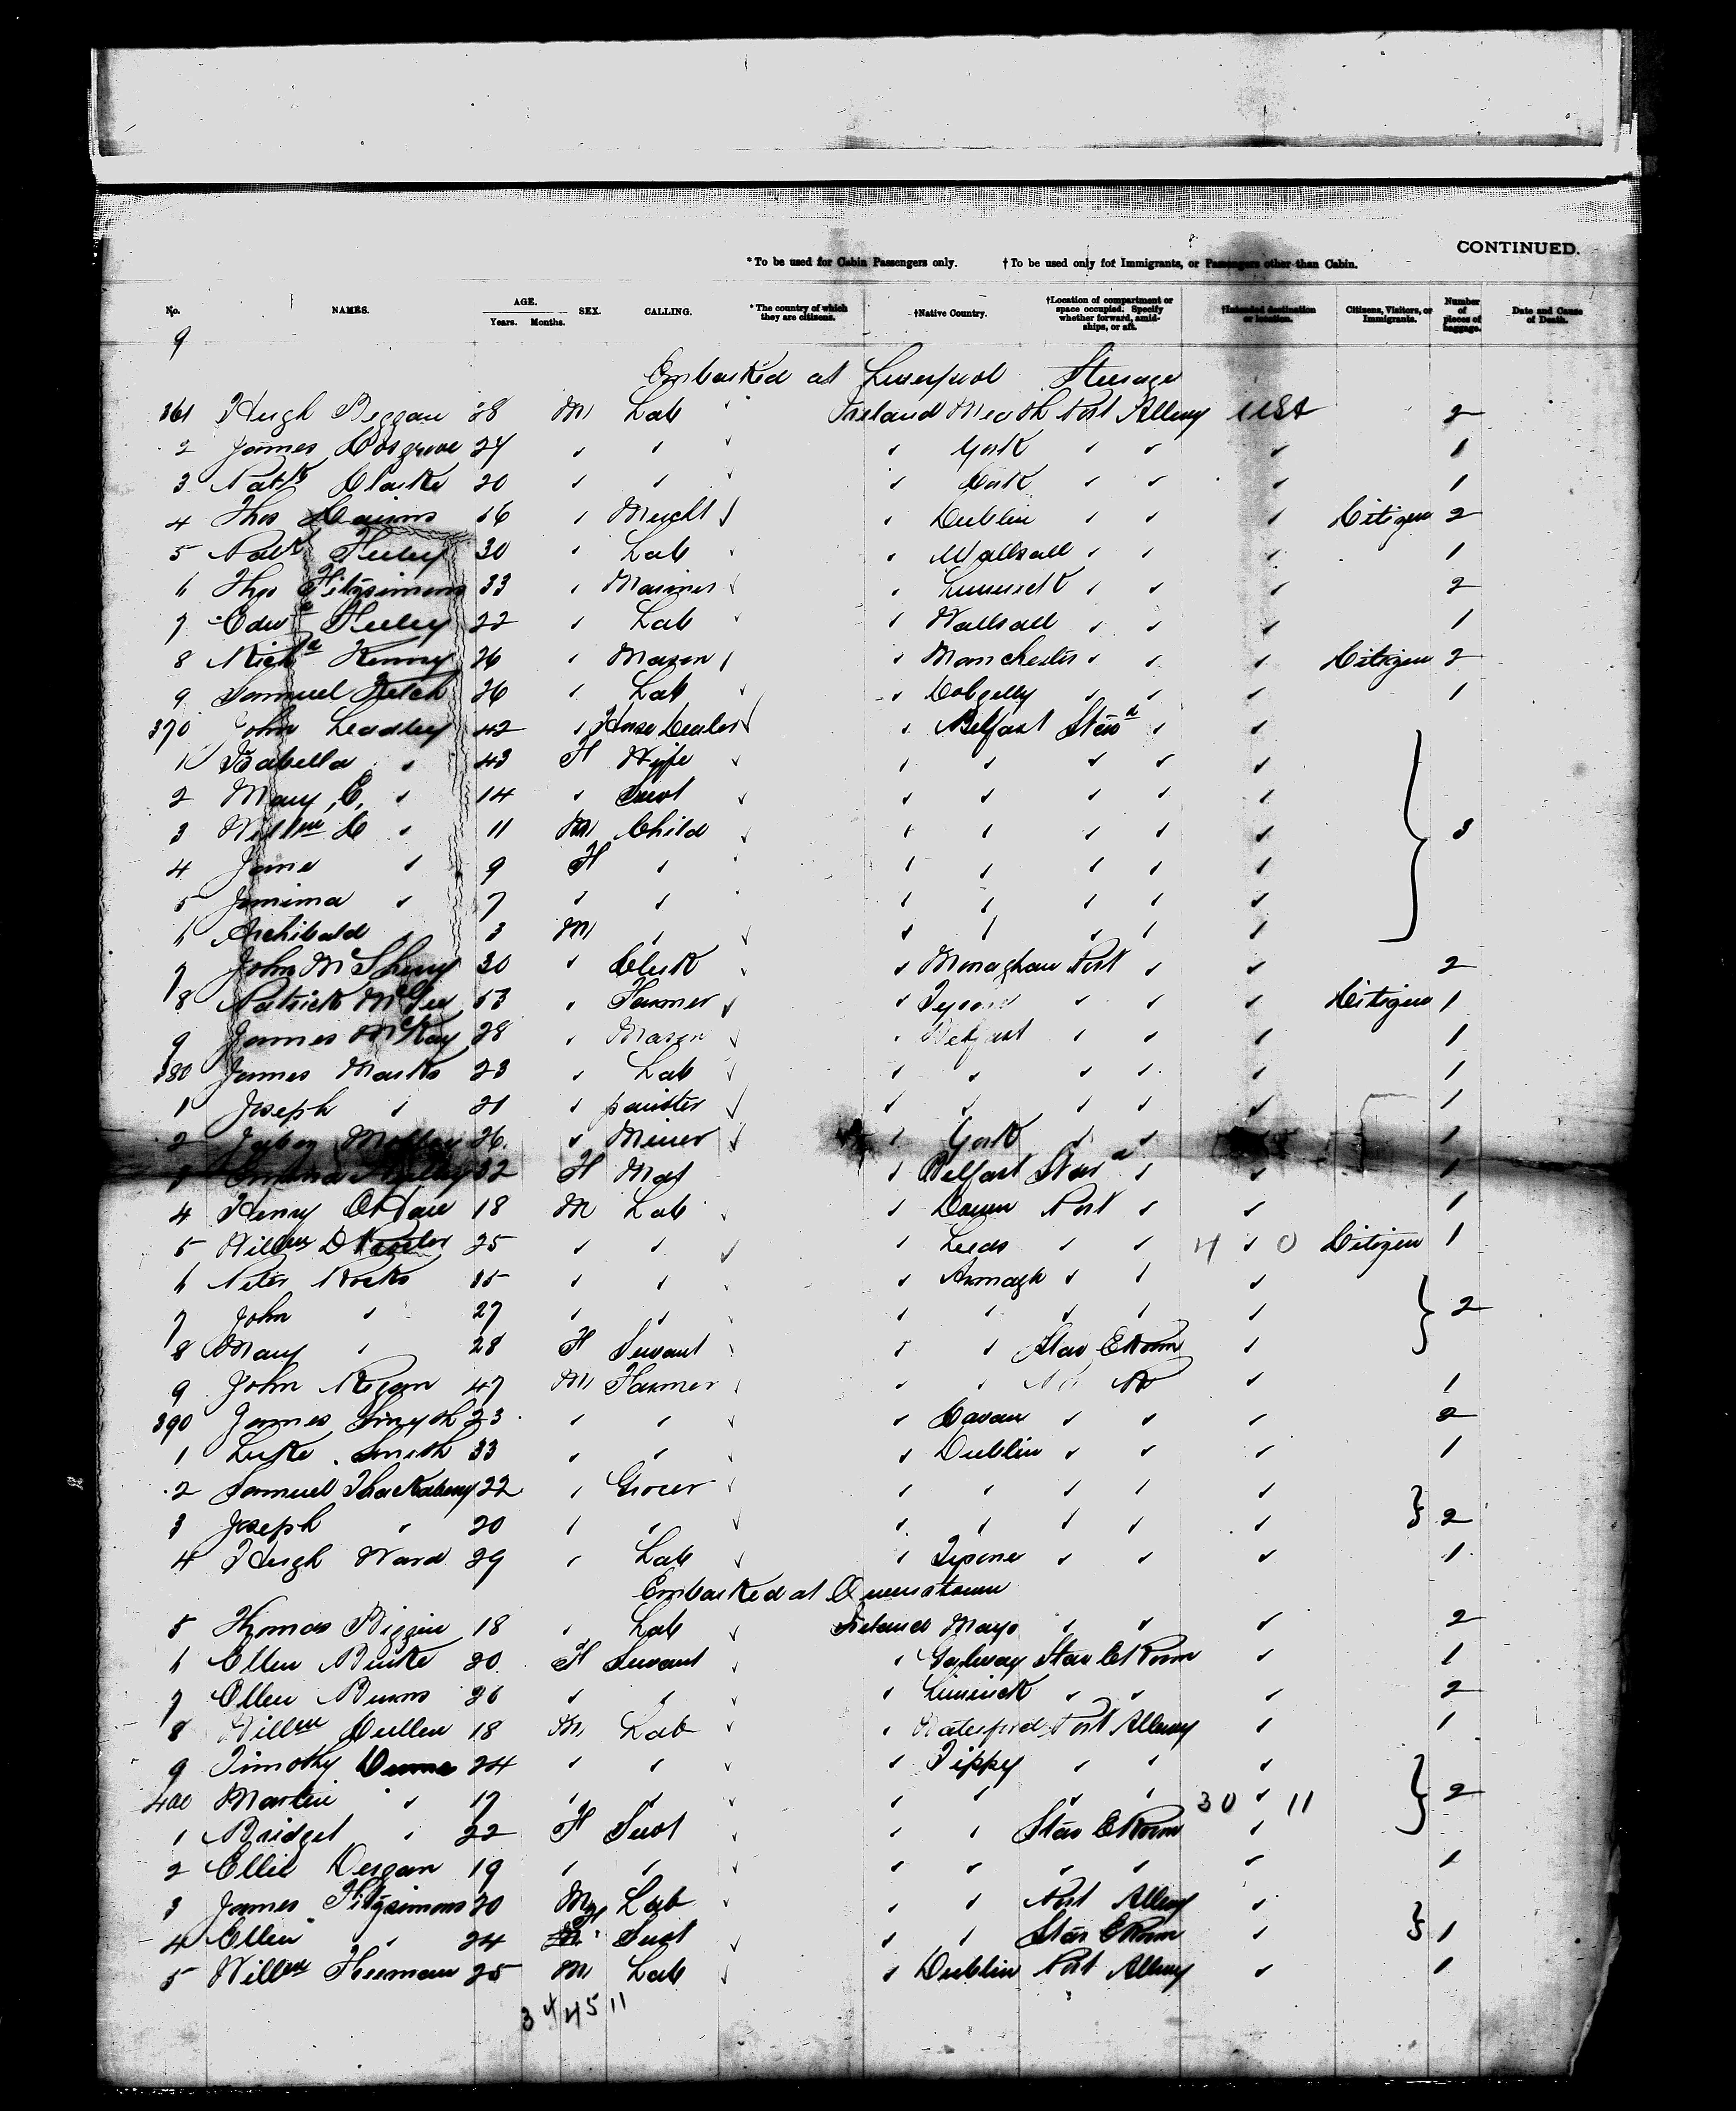 CONTINUED.
* To be used for Cabin Passengers only. † To be used only for Immigrants, or Passengers other than Cabin.
No. NAMES. AGE. Years. Months. SEX. CALLING. * The country of which they are citizens. †Native Country. †Location of compartment or space occupied. Specify whether forward, amidships, or aft. †Intended destination or location. Citizens, Visitors, or Immigrants. Number of pieces of baggage. Date and Cause of Death.
9
Embarked at Liverpool Steerage
361 Hugh Beggan 28 M Lab Ireland Meath Port Alleway USA 2
2 James Cosgrove 24 " " " York " " " 1
3 Patk Clarke 20 " " " Cork " " " 1
4 Thos Cairns 36 " Mercht " Dublin " " " Citizen 2
5 Patk Feeley 30 " Lab " Wallsall " " " 1
6 Thos Fitzsimons 33 " Mariner " Limerick " " " 2
7 Edwd Feeley 22 " Lab " Wallsall " " " 1
8 Richd Kenny 26 " Mason " Manchester " " " Citizen 2
9 Samuel 26 " Lab " Dolgelly " " " 1
370 John Leadley 42 " Horse Dealer " Belfast Starbd " "
1 Isabella " 43 F Wife " " " " "
2 Mary E. " 14 " Servt " " " " "
3 Willm C " 11 M Child " " " " " 3
4 Jane " 9 F " " " " " "
5 Jemima " 7 " " " " " " "
6 Archibald " 3 M " " " " " "
7 John McSherry 30 " Clerk " Monaghan Port " " 2
8 Patrick McGee 53 " Farmer " Tyrone " " " Citizen 1
9 James McKay 28 " Mason " Belfast " " " 1
380 James Marks 23 " Lab " " " " " 1
1 Joseph " 21 " painter " " " " " 1
2 26 " Miner " York " " " 1
3 32 F Mat " Belfast Starbd " " 1
4 Henry O'Hare 18 M Lab " Down Port " " 1
5 Willm D 25 " " " Leeds " " 4 " 0 Citizen 1
6 Peter Rocks 15 " " " Armagh " " "
7 John " 27 " " " " " " " 2
8 Mary " 28 F Servant " " Star E Room "
9 John Regan 47 M Farmer " " " 1
390 James Smyth 23 " " " Cavan " " " 2
1 Luke Smith 33 " " " Dublin " " " 1
2 Samuel Thackaberry 22 " Grocer " " " " "
3 Joseph " 20 " " " " " " " 2
4 Hugh Ward 29 " Lab " Tyrone " " " 1
Embarked at Queenstown
5 Thomas Biggin 18 " Lab Ireland Mayo " " " 2
6 Ellen Burke 20 F Servant " Galway Star E Room " 1
7 Ellen Burns 26 " " " Limerick " " " 2
8 Willm Cullen 18 M Lab " Waterford Port Alleway " 1
9 Timothy Dunne 24 " " " Tippy " " "
400 Martin " 17 " " " " " " 30 " 11 2
1 Bridget " 22 F Servt " " Star E Room "
2 Ellie Deegan 19 " " " " " " " 1
3 James Fitzsimons 20 M Lab " " Port Alleway "
4 Ellen " 24 F Servt " " Star E Room " 1
5 Willm Freeman 25 M Lab " Dublin Port Alleway " 1
34 45 11